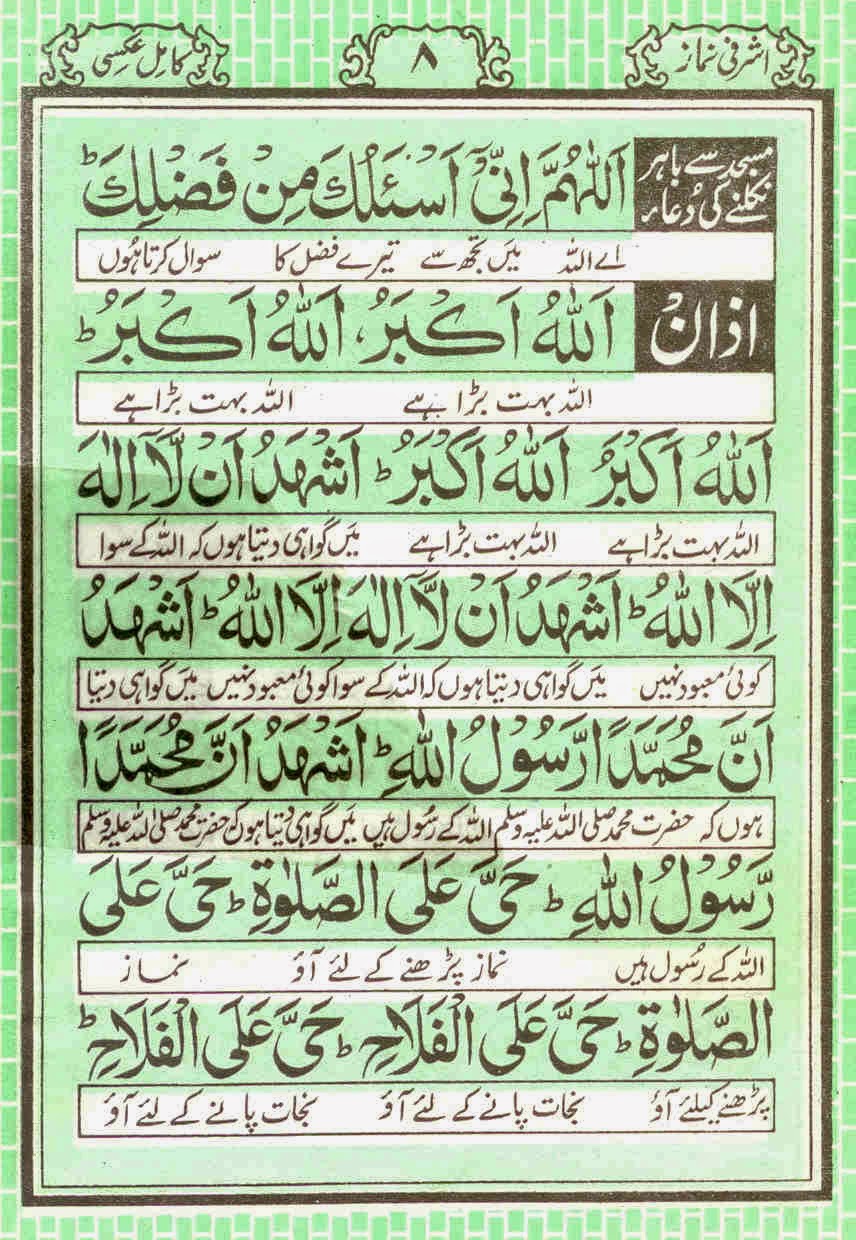 اشرفی نماز
۸
کامل عکسی
مسجد سے باہر
نکلنے کی دُعاء
اَللّٰهُمَّ اِنِّیْٓ اَسْئَلُكَ مِنْ فَضْلِكَ ؕ
اے اللہ میں تجھ سے تیرے فضل کا سوال کرتا ہُوں
اذانْ
اَللّٰهُ اَكْبَرُ، اَللّٰهُ اَكْبَرُ ؕ
اللہ بہت بڑا ہے اللہ بہت بڑا ہے
اَللّٰهُ اَكْبَرُ اَللّٰهُ اَكْبَرُ ؕ اَشْهَدُ اَنْ لَّآ اِلٰهَ
اللہ بہت بڑا ہے اللہ بہت بڑا ہے میں گواہی دیتا ہوں کہ اللہ کے سوا
اِلَّا اللّٰهُ ؕ اَشْهَدُ اَنْ لَّآ اِلٰهَ اِلَّا اللّٰهُ ؕ اَشْهَدُ
کوئی معبود نہیں میں گواہی دیتا ہوں کہ اللہ کے سوا کوئی معبود نہیں میں گواہی دیتا
اَنَّ مُحَمَّدًا رَّسُوْلُ اللّٰهِ ؕ اَشْهَدُ اَنَّ مُحَمَّدًا
ہوں کہ حضرت محمد صلی اللہ علیہ وسلم اللہ کے رسُول ہیں میں گواہی دیتا ہوں کہ حضرت محمد صلی اللہ علیہ وسلم
رَّسُوْلُ اللّٰهِ ؕ حَیَّ عَلَی الصَّلٰوةِ ؕ حَیَّ عَلَی
اللہ کے رسُول ہیں نماز پڑھنے کے لئے آؤ نماز
الصَّلٰوةِ ؕ حَیَّ عَلَی الْفَلَاحِ ؕ حَیَّ عَلَی الْفَلَاحِ ؕ
پڑھنے کیلئے آؤ نجات پانے کے لئے آؤ نجات پانے کے لئے آؤ